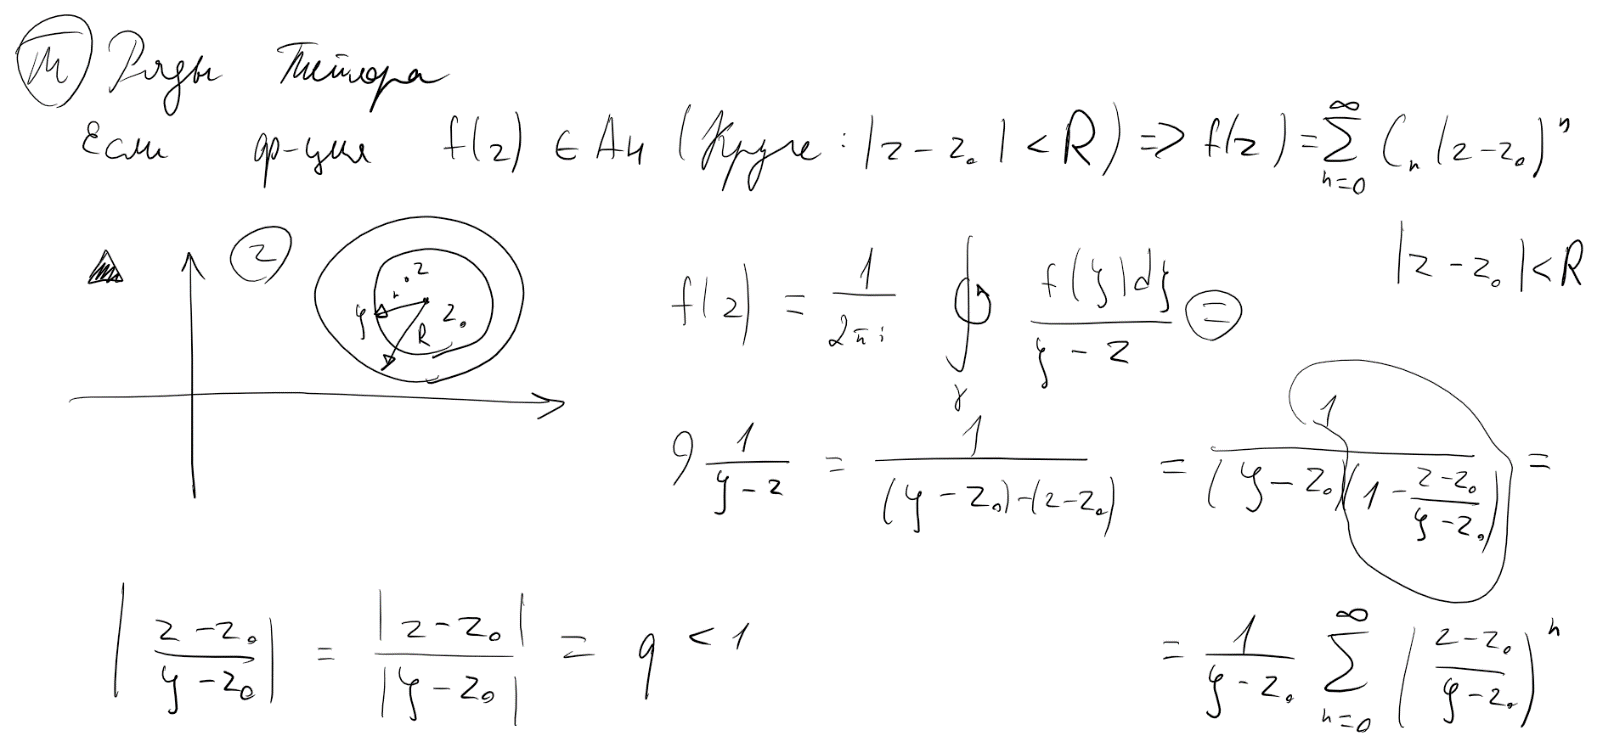 Т Ряды Тейлора
Если ф-ция f(z) ∈ Ан (Круге: |z - z₀| < R) => f(z) = ∑_{n=0}^{∞} Cₙ (z-z₀)ⁿ
|z - z₀| < R
z
z
ζ
z₀
R
f(z) = 1/(2πi) ∮_γ f(ζ)dζ/(ζ - z) =
1/(ζ - z) = 1/((ζ - z₀) - (z - z₀)) = 1/((ζ - z₀)(1 - (z - z₀)/(ζ - z₀))) =
|(z - z₀)/(ζ - z₀)| = |z - z₀|/|ζ - z₀| = q < 1
= 1/(ζ - z₀) ∑_{n=0}^{∞} ((z - z₀)/(ζ - z₀))ⁿ